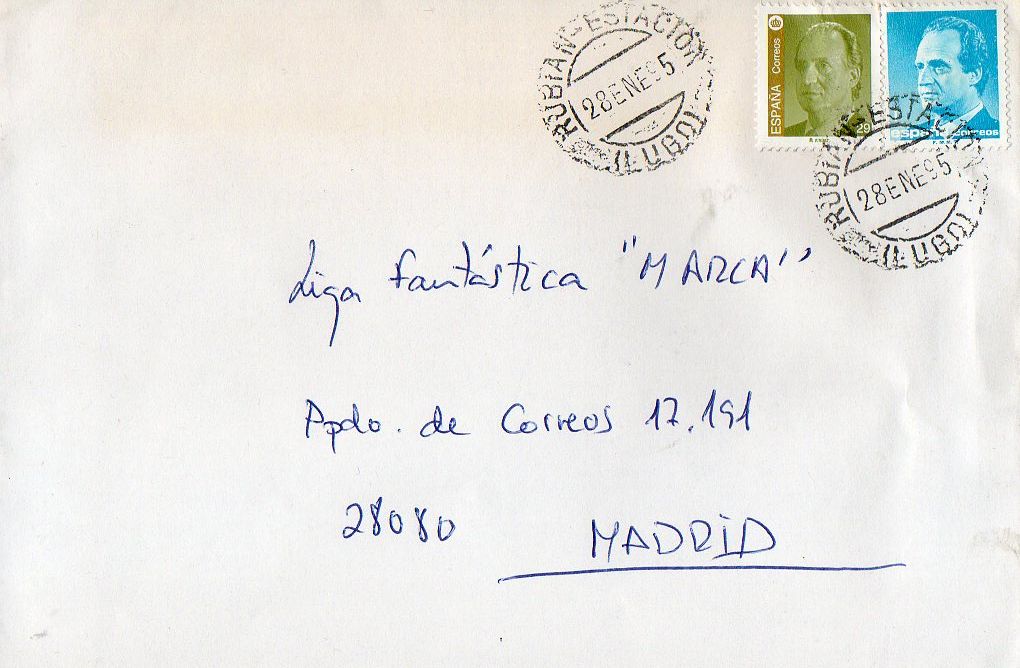 RUBIAN-ESTACION
28 ENE 95
(LUGO)
ESPAÑA Correos
29
españa correos
RUBIAN-ESTACION
28 ENE 95
(LUGO)
Liga fantástica "MARCA"
Apdo. de Correos 17.191
28080 MADRID